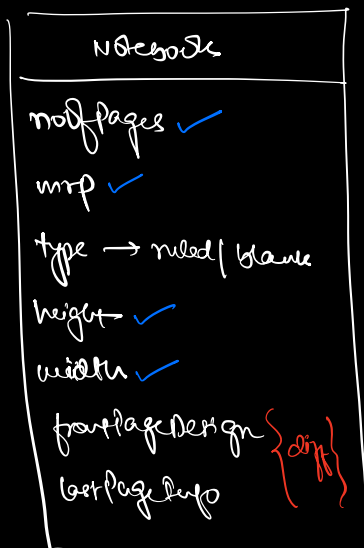 Notebook
noOfPages ✓
mrp ✓
type → ruled / blank
height ✓
width ✓
frontPageDesign
lastPageInfo
{diff}